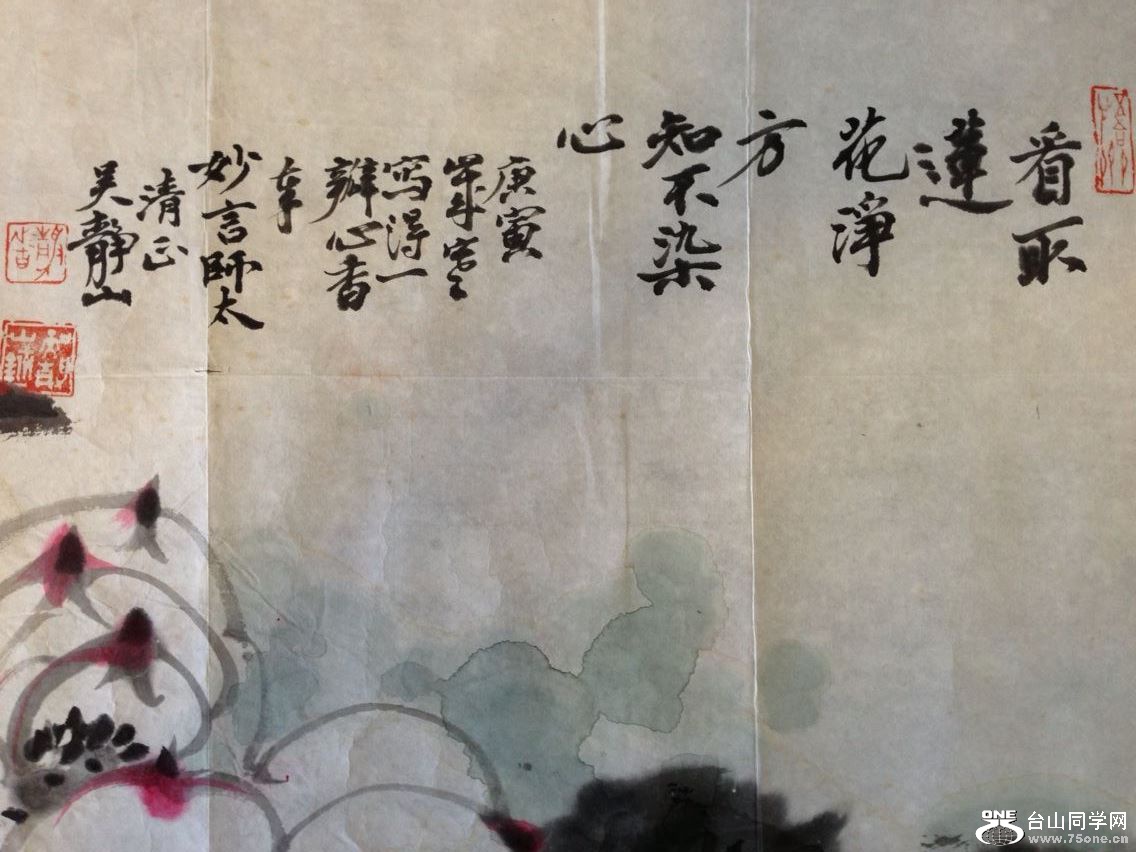 看取
蓮
花淨
方
知不染
心
庚寅
寫得一
瓣心香
奉
妙言師太
清正
吳靜山
ONE
台山同学网
www.75one.cn